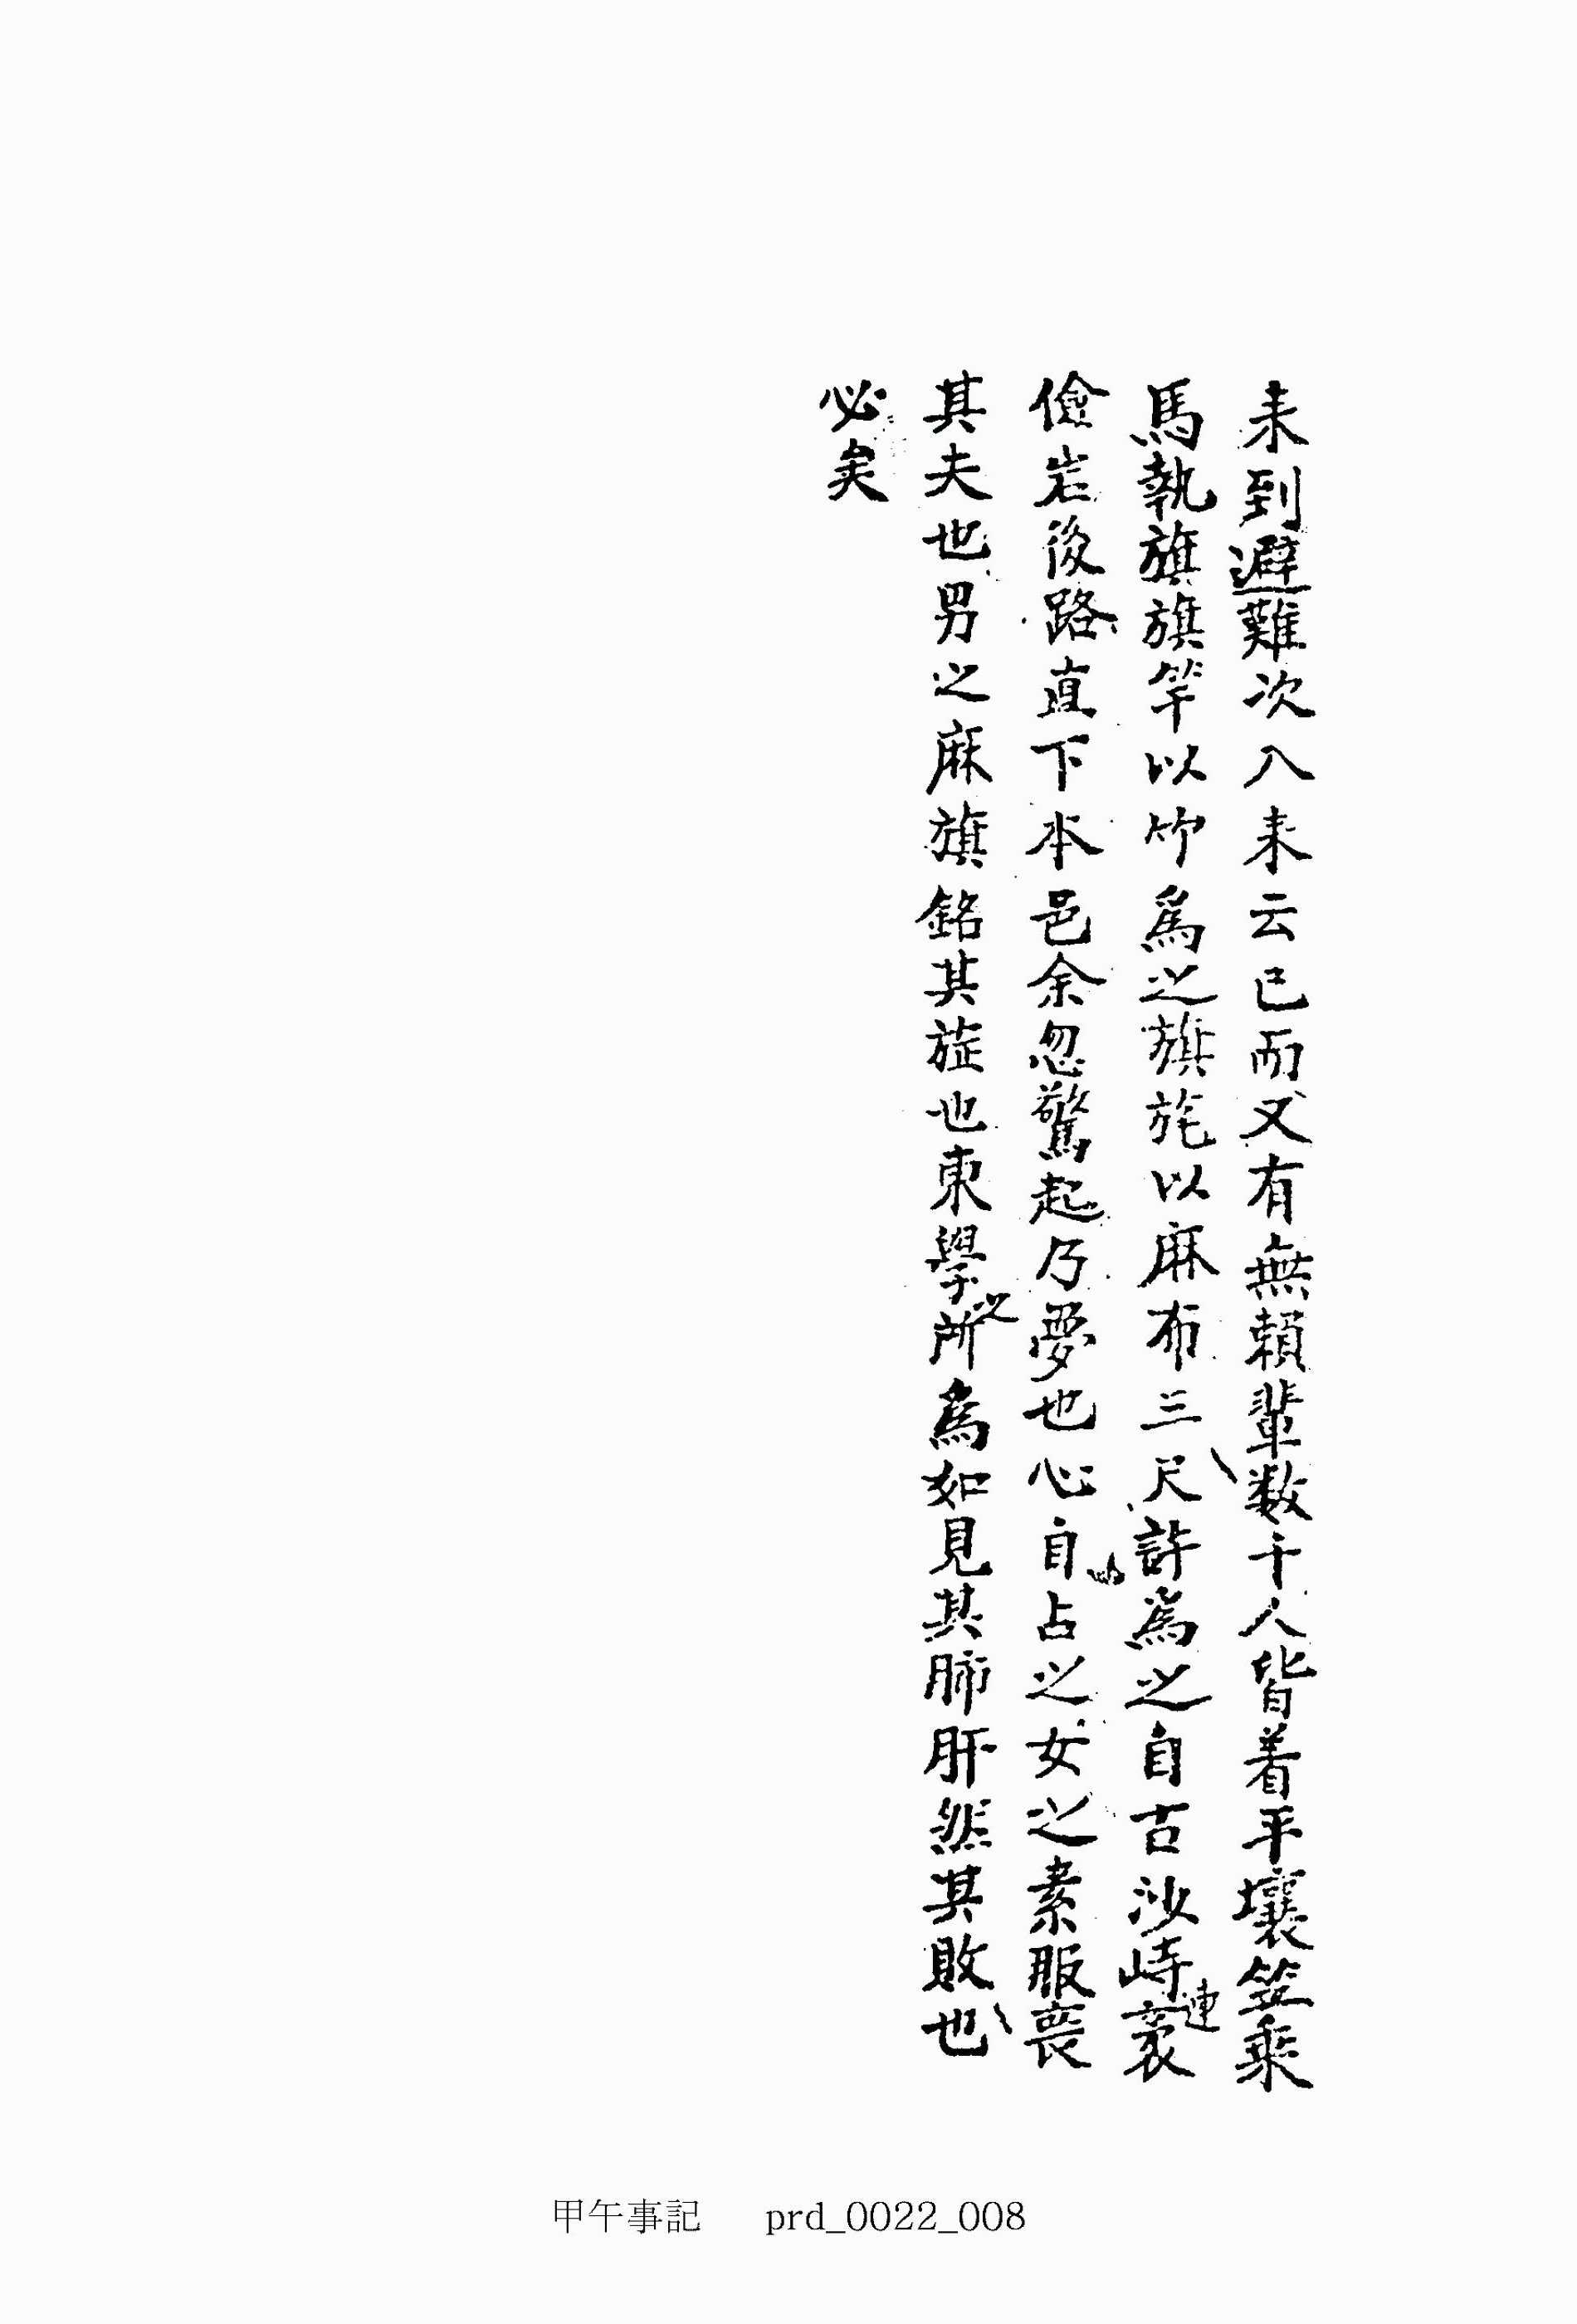 来到避難次入来云已而又有無賴輩数千人皆着平壤笠乘
馬執旗旗竿以竹爲之旗旄以麻布三尺許爲之自古沙峙連袤
儉岩後路直下本邑余忽驚起乃夢也心自占之女之素服喪
其夫也男之麻旗銘其旌也東學之所爲如見其肺肝然其敗也
必矣
甲午事記 prd_0022_008